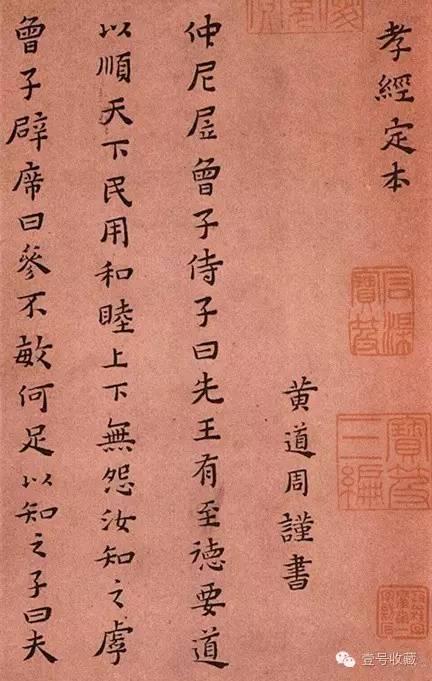 孝經定本
黄道周謹書
仲尼凥曾子侍子曰先王有至徳要道
以順天下民用和睦上下無怨汝知之虖
曾子辟席曰參不敏何足以知之子曰夫
石渠寶笈
寶笈三編
壹号收藏